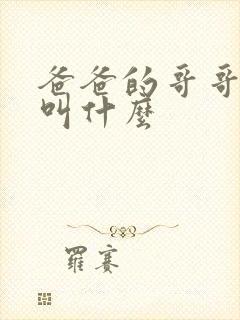 爸爸的哥哥
叫什麼
羅賽